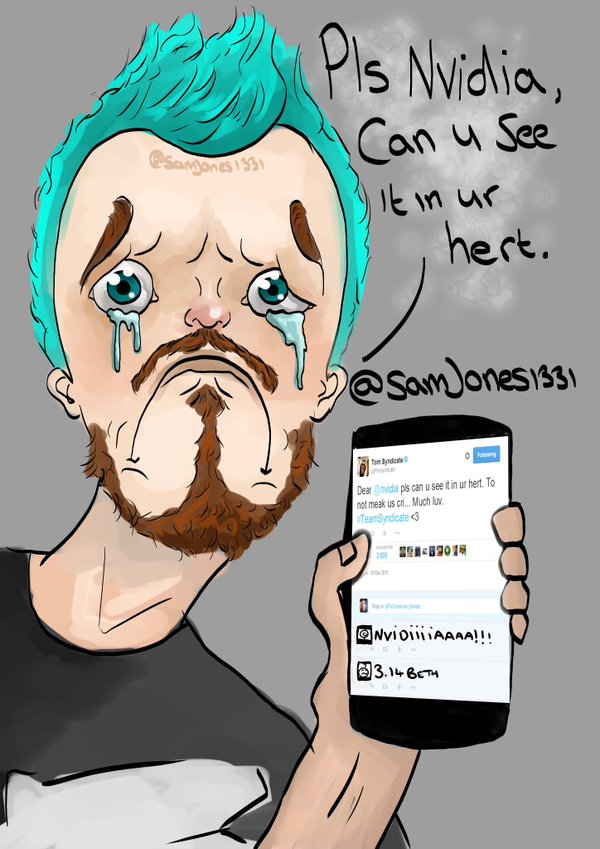 Pls Nvidia,
Can u See
it in ur
hert.
@samJones1331
@samJones1331
Tom Syndicate
@ProSyndicate
Following
Dear @nvidia pls can u see it in ur hert. To
not meak us cri... Much luv.
#TeamSyndicate <3
Reply to @ProSyndicate @nvidia
NViDiiiiAAAA!!!
3.14 BETH